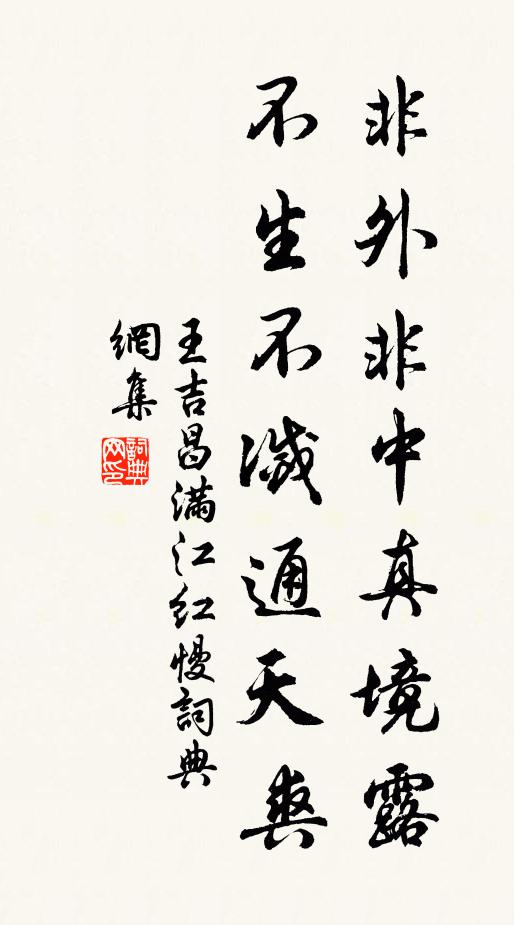 非外非中真境露
不生不滅通天爽
王吉昌滿江紅慢詞典
網集
詞典
网印